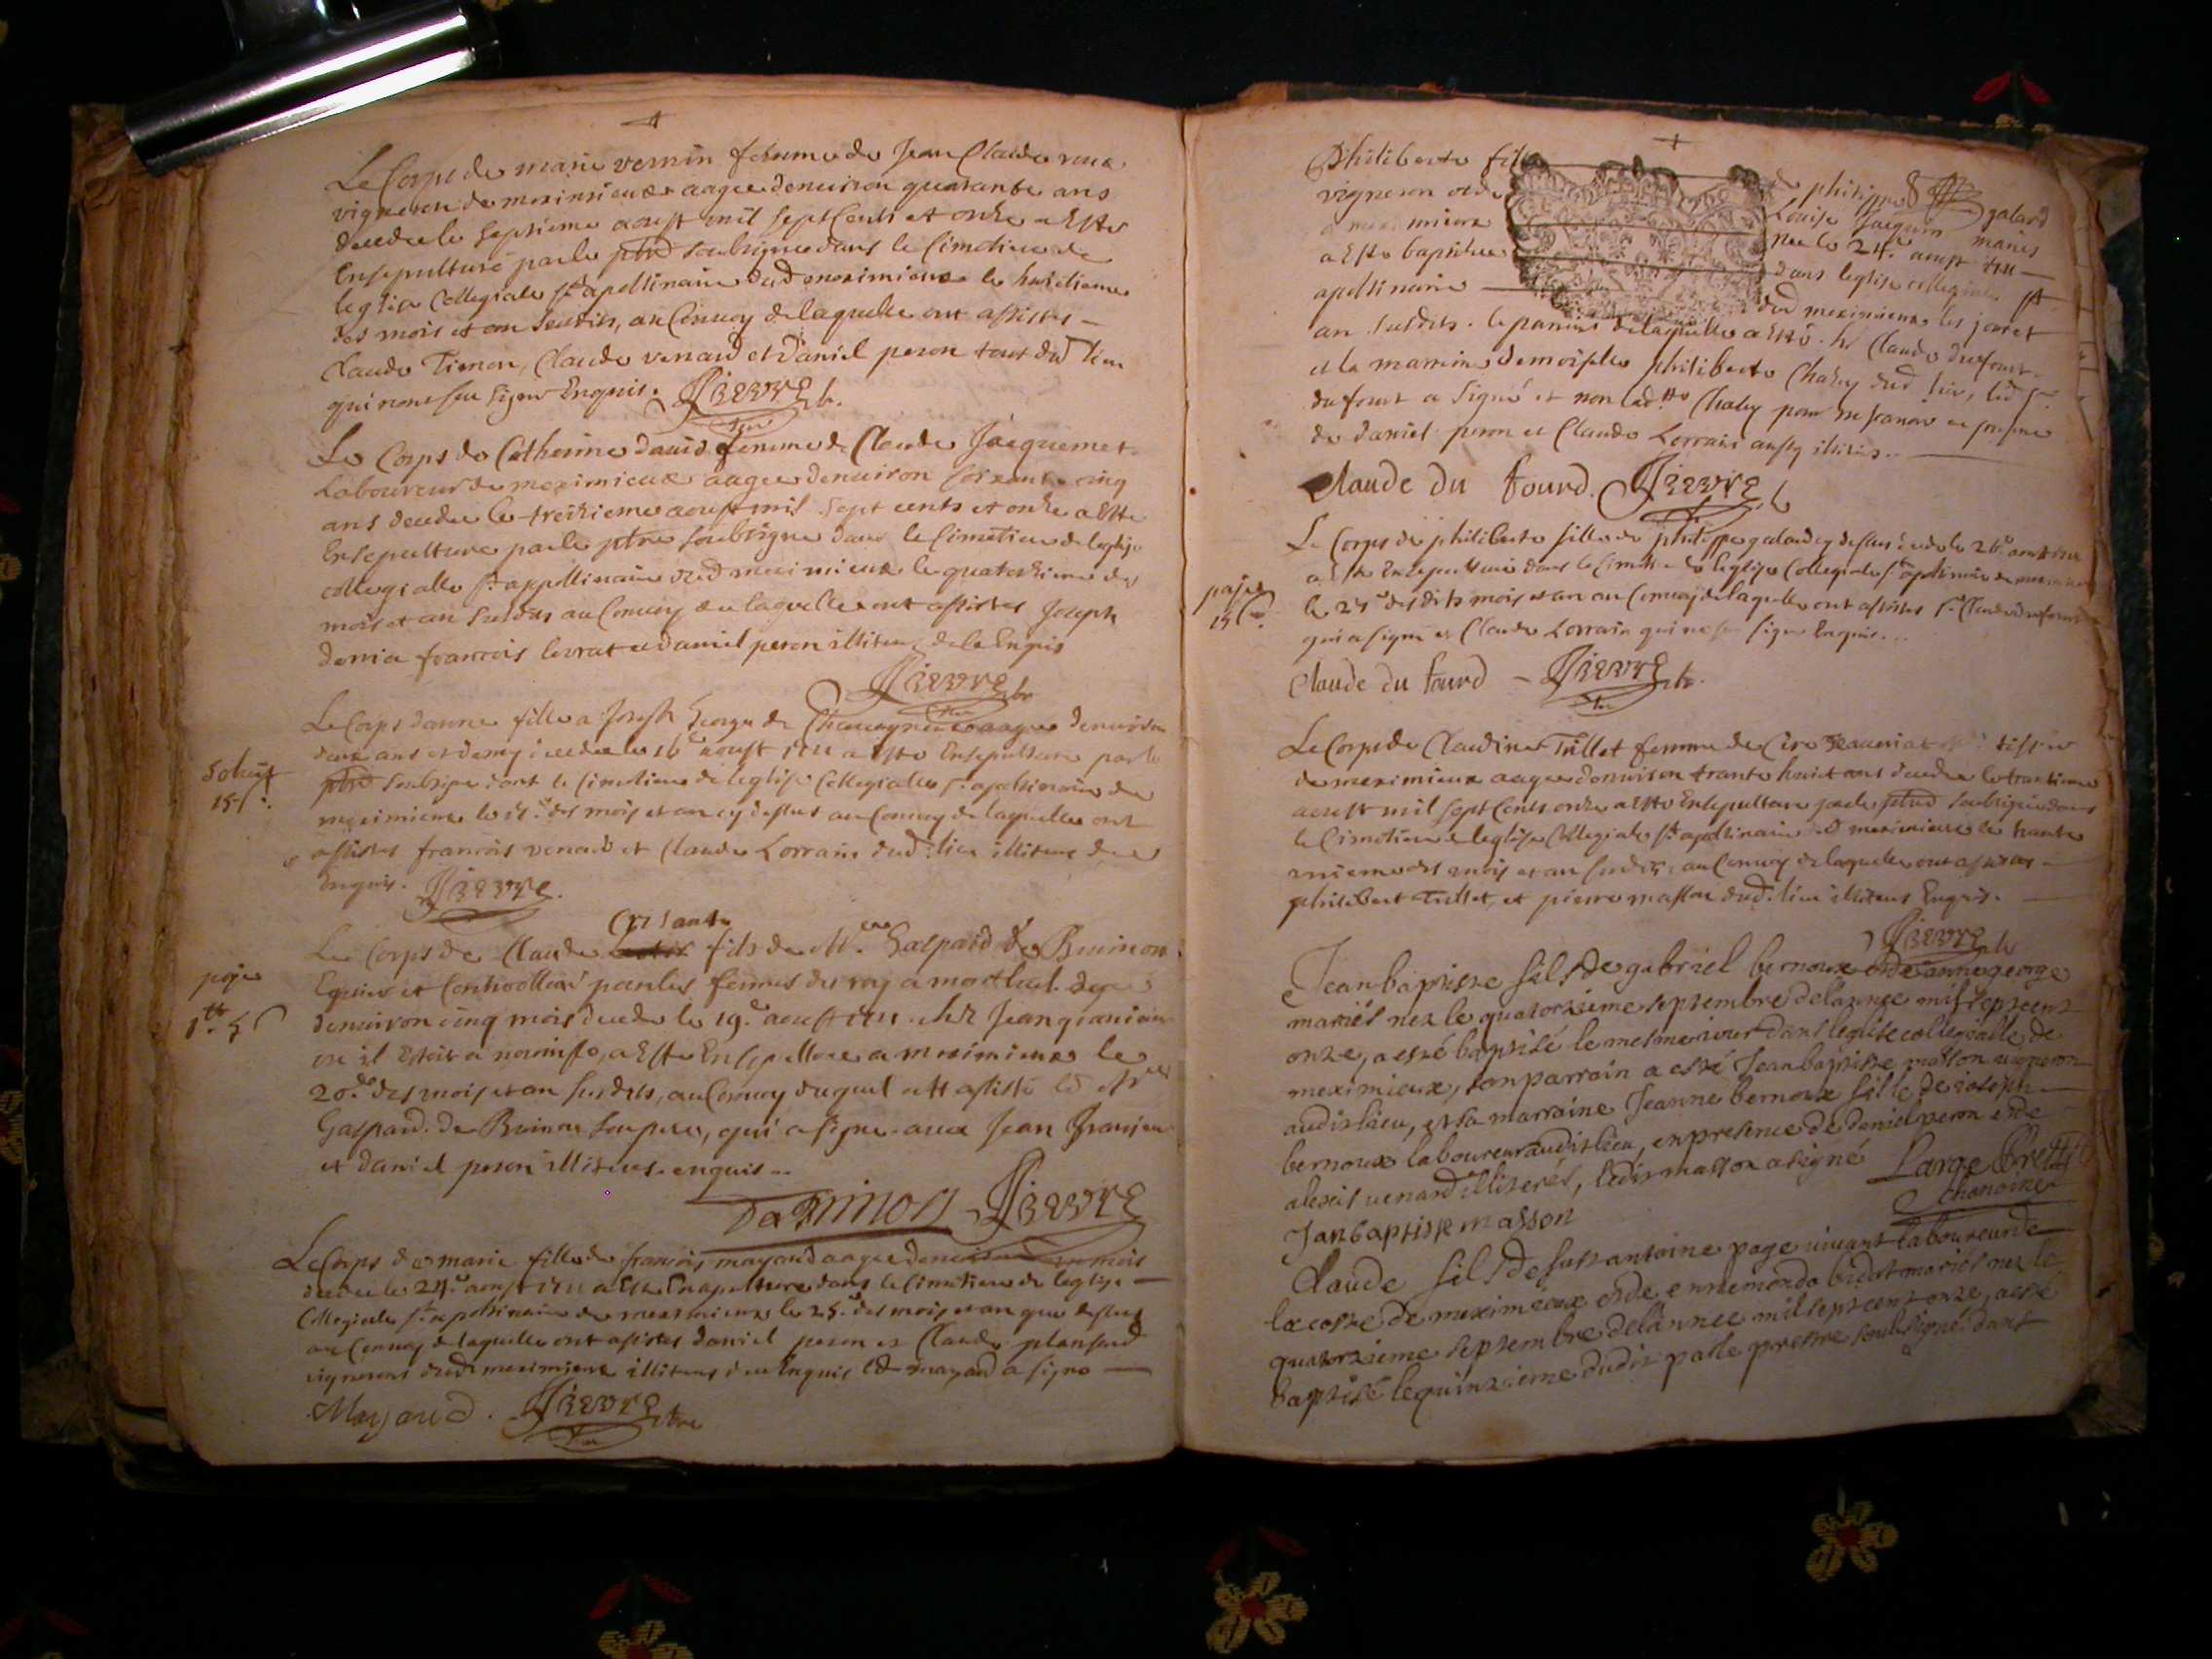 Le Corps de marie vernin femme de Jean Claude
vigneron de meximieux aagee denuiron quarante ans
decedee le septieme aoust mil sept Cents et onze a Este
Ensepulturé par le ptre soubsigné dans le Cimetiere de
leglise Collegiale st apollinaire dud meximieux le huictieme
des mois et an susdits, au Conuoy de laquelle ont assistes
Claude Timon, Claude venard et Daniel peron tous dud lieu
qui nont seu signer Enquis.
Le Corps de Catherine dauid femme de Claude Jacquemet
Laboureur de meximieux aagee denuiron soixante cinq
ans decedee le treizieme aoust mil sept cents et onze a Este
Ensepulturee par le ptre soubsigne dans le Cimetiere de leglise
collegialle st appollinaire dud meximieux le quatorzieme des
mois et an susdits au Conuoy de laquelle ont assistes Joseph
francois leurat et daniel peron illiteres de ce Enquis
Le Corps danne fille a Joseph George de aagee denuiron
deux ans et demy decedee le 16e aoust 1711 a Este Ensepulturee par le
ptre soubsigne dans le Cimetiere de leglise Collegialle st apollinaire de
meximieux le des mois et an cy dessus au Conuoy de laquelle ont
assistes francois venard et Claude Lorrain dud. lieu illiteres de ce
Enquis.
15 s.
Le Corps de Claude fils de Mr. Gaspard de Buinon
Equier et
denuiron cinq mois decede le 19e aoust 1711 chez Jean
ou il Estoit a nourisse, a Este Ensepulture a meximieux le
20e des mois et an susdits, au Conuoy duquel ont assisté
Gaspard de Buinon son pere, qui a signe auec Jean
et daniel peron illiteres enquis
paye
Le Corps de marie fille de francois mayaud aagee denuiron un mois
decedee le 24e aoust 1711 a Este Ensepulturee dans le Cimetiere de leglise
Collegiale st apollinaire de meximieux le 25e des mois et an que dessus
au Conuoy de laquelle ont assistes daniel peron et Claude
vignerons dud meximieux illiteres de ce Enquis led mayaud a signe
Mayaud.
Philiberte fille de philippe galand
vigneron et de Louise Jacquin maries
a meximieux nee le 24e aoust 1711
a Este baptisee dans leglise collegiale st
apollinaire dud meximieux les jour et
an susdits. le parrain de laquelle a Esté sr Claude dufourt
et la marrine demoiselle philiberte Chaley dud lieu, led sr.
dufourt a signé et non lad.tte Chaley pour ne scauoir en presence
de daniel peron et Claude Lorrain aussy illiteres.
Claude du fourd.
Le Corps de philiberte fille de philippe galand cy dessus decedee le 26e aoust 1711
a Este Ensepulturee dans le Cimetiere de leglise Collegiale st apollinaire de meximieux
le 27e desdits mois et an au Conuoy de laquelle ont assistes sr Claude dufourt
qui a signe et Claude Lorrain qui ne seu signer Enquis.
paye
15 s.
Claude du fourd
Le Corps de Claudine Tullet femme de
de meximieux aagee denuiron trante huict ans decedee le trantieme
aoust mil sept Cents onze a Este Ensepulturee par le ptre soubsigné dans
le Cimetiere de leglise Collegiale st apollinaire d meximieux le trante
unieme des mois et an susdits, au Conuoy de laquelle ont assistes
philibert Tullet, et pierre masson dud. lieu illiteres Enquis.
Jean baptiste fils de gabriel bernoux et de anne george
mariés nez le quatorzieme septembre de lannee mil sept cent
onze, a esté baptisé le mesme iour dans leglise collegialle de
meximieux, son parrain a esté Jean baptiste masson uigneron
audit lieu, et sa marraine Jeanne bernoux fille de ioseph
bernoux laboureur audit lieu, en presence de daniel peron et de
alexis uenard illiterés, ledit masson a signé
Large Prettre
chanoine
Jan baptiste masson
Claude fils de fust antoine page uiuant laboureur de
la coste de meximieux et de ennemonde bidat mariés nez le
quatorzieme septembre de lannee mil sept cent onze, a esté
baptisé le quinzieme dudit par le prestre soubsigné dans